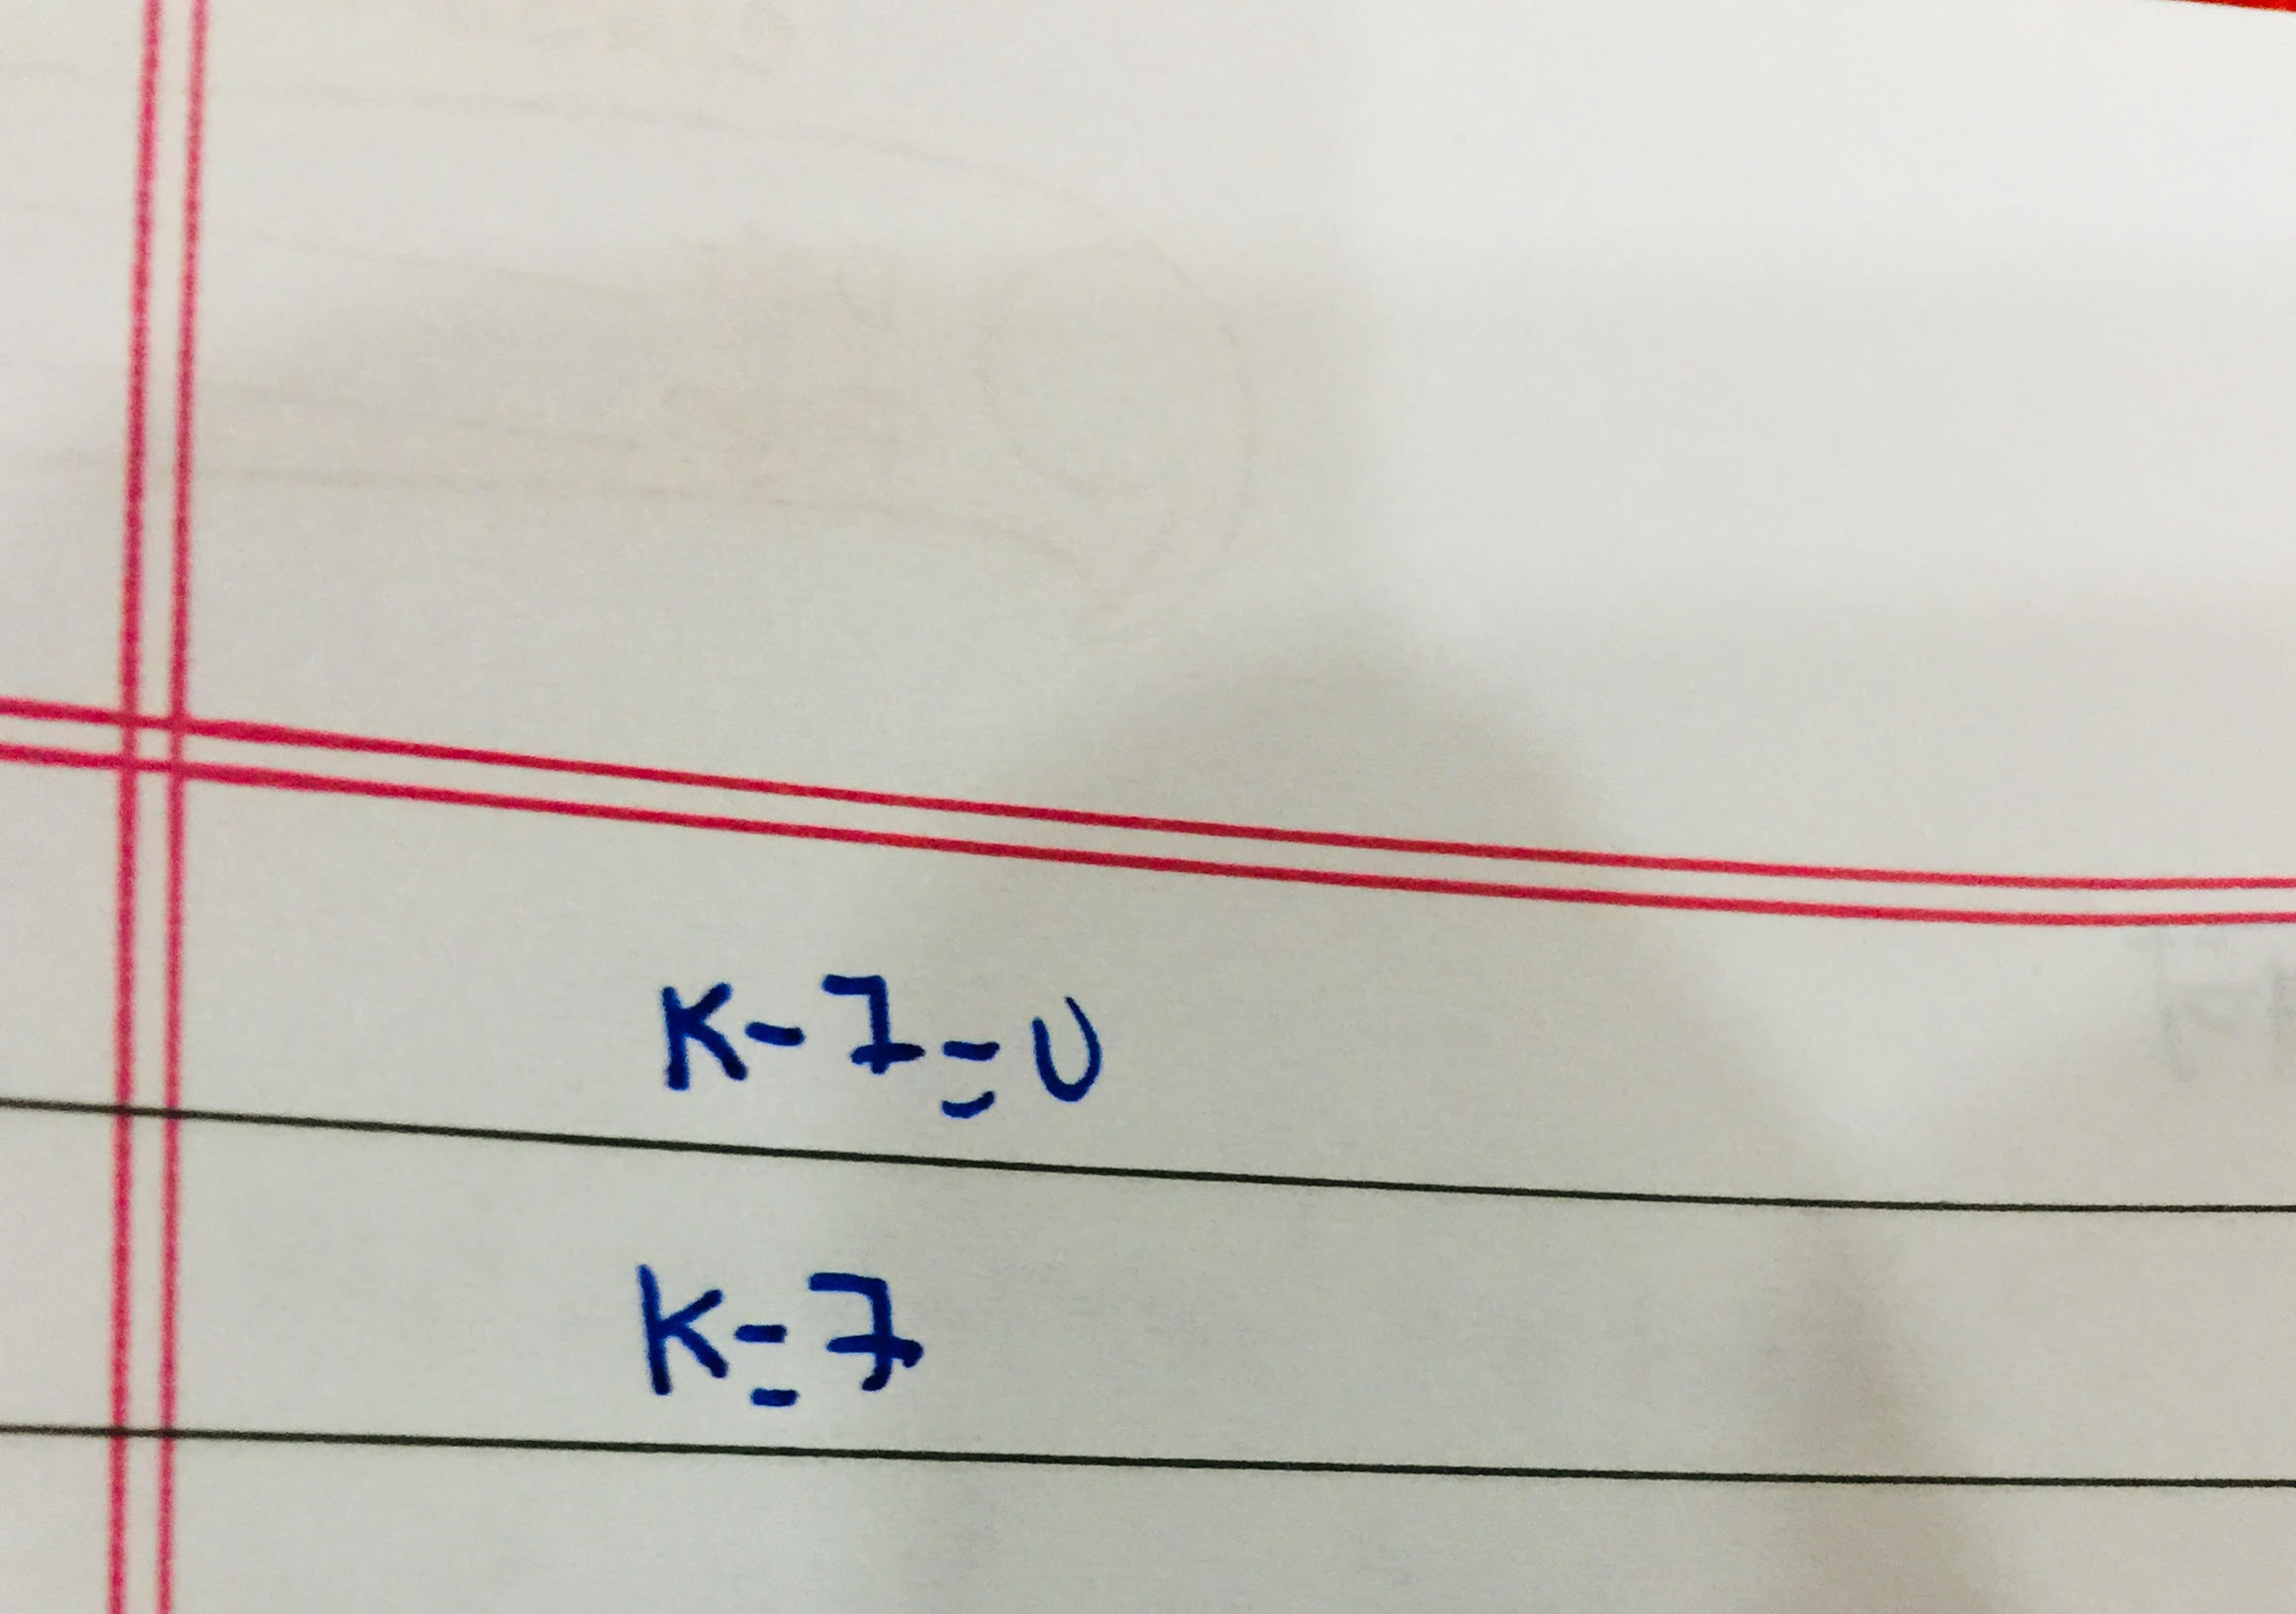 K-7=0
K=7